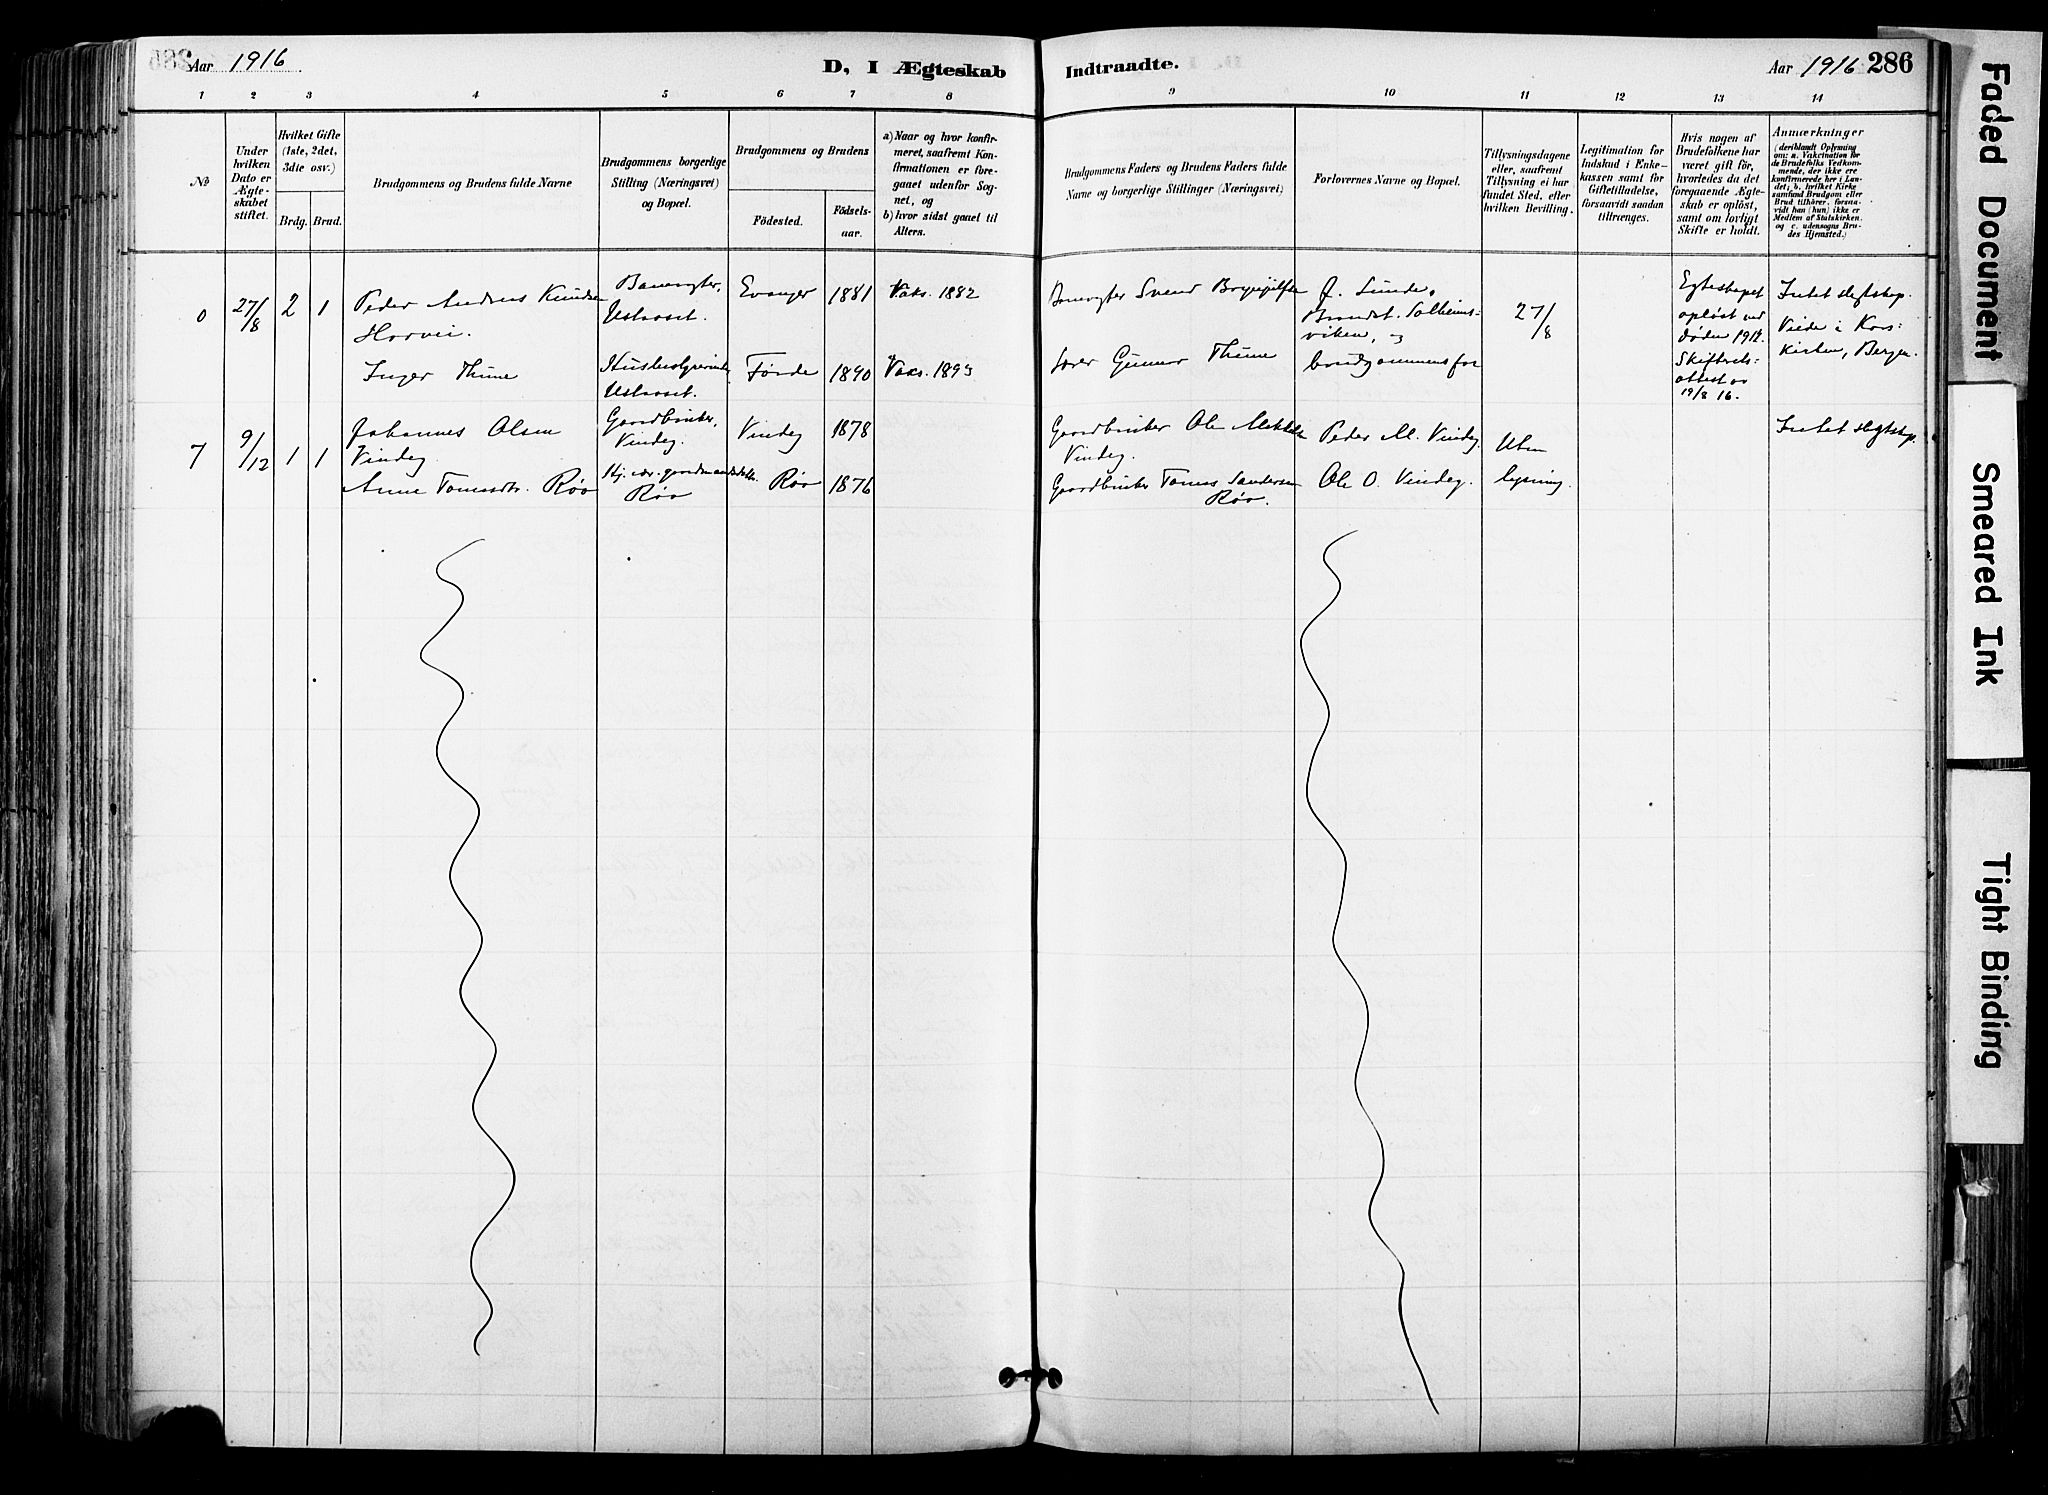 Aar 1916
D, I Ægteskab
Indtraadte.
Aar 1916 286
1 2 3 4 5 6 7 8 9 10 11 12 13 14
No
Under hvilken Dato er Ægteskabet stiftet.
Hvilket Gifte (1ste, 2det, 3die osv.)
Brdg. Brud.
Brudgommens og Brudens fulde Navne
Brudgommens borgerlige Stilling (Næringsvei) og Bopæl.
Brudgommens og Brudens
Födested.
Födsels-aar.
a) Naar og hvor konfir-
meret, saafremt Kon-
firmationen er fore-
gaaet udenfor Sog-
net, og
b) hvor sidst gaaet til
Alters.
Brudgommens Faders og Brudens Faders fulde
Navne og borgerlige Stillinger (Næringsvei)
Forlovernes Navne og Bopæl.
Tillysningsdagene
eller, saafremt
Tillysning ei har
fundet Sted, efter
hvilken Bevilling.
Legitimation for
Indskud i Enke-
kassen samt for
Giftetilladelse,
forsaavidt saadan
tiltrænges.
Hvis nogen af
Brudefolkene har
været gift för,
hvorledes da det
foregaaende Ægte-
skab er oplöst,
samt om lovligt
Skifte er holdt.
Anmærkninger
(deriblandt Oplysning
om: a. Vakcination for
de Brudefolks Vedkom-
mende, der ikke ere
konfirmerede her i Lan-
det; b. hvilket Kirke
samfund Brudgom eller
Brud tilhörer, forsaa-
vidt han (hun) ikke er
Medlem af Statskirken.
og c. udensogns Bru-
des Hjemsted.)
27/8 2 1 Peder Andreas Knudsen
Horvei.
Banevogter,
Ustaoset.
Evanger 1881 Vaks. 1882
Banevogter Svend
J. Sunde,
Solheims-
viken, og
27/8
Egteskapet
opløst ved
døden 1912.
Skifterets-
attest av
19/8 16.
Intet slegtskap.
Viede i Kors-
kirken, Bergen.
Inger Thune
Ustaoset.
Førde 1890 Vaks. 1893
Gunnar Thune
brudgommens far
7 9/12 1 1 Johannes Olsen
Vindeg.
Gaardbruker,
Vindeg.
Vindeg 1878
Gaardbruker Ole
Vindeg.
Peder M. Vindeg.
Uten
Intet slegtskap.
Anne Tomasdtr. Røo
Røo
Røo 1876
Gaardbruker Tomas Sandersen
Røo.
Ole O. Vindeg.
lysning.
Faded Document
Smeared Ink
Tight Binding